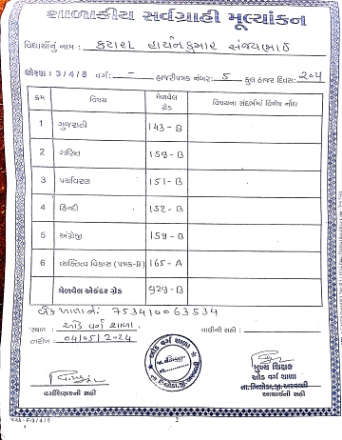 શાળાકીય સર્વગ્રાહી મૂલ્યાંકન
વિદ્યાર્થીનું નામ : કટારા હાર્યનકુમાર સંજયભાઈ
ધોરણ : 3/4/8 વર્ગ: - હાજરીપત્રક નંબર: 5 કુલ હાજર દિવસ: 204
ક્રમ વિષય મેળવેલ ગ્રેડ વિષયના સંદર્ભમાં વિશેષ નોંધ
1 ગુજરાતી 143-B
2 ગણિત 159-B
3 પર્યાવરણ 151-B
4 હિન્દી 152-B
5 અંગ્રેજી 159-B
6 વ્યક્તિત્વ વિકાસ (પત્રક-B) 165-A
મેળવેલ એકંદર ગ્રેડ 929-B
સ્થળ : ઓડ વર્ગ શાળા વાલીની સહી :
તારીખ : 04/05/2024
મુખ્ય શિક્ષક
ઓડ વર્ગ શાળા
વર્ગશિક્ષકની સહી
આચાર્યની સહી